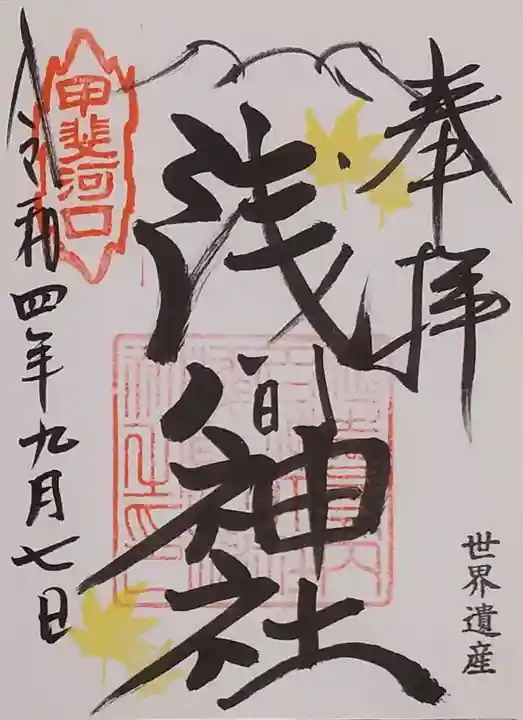 奉拝
世界遺産
浅間神社
甲斐河口
令和四年九月七日